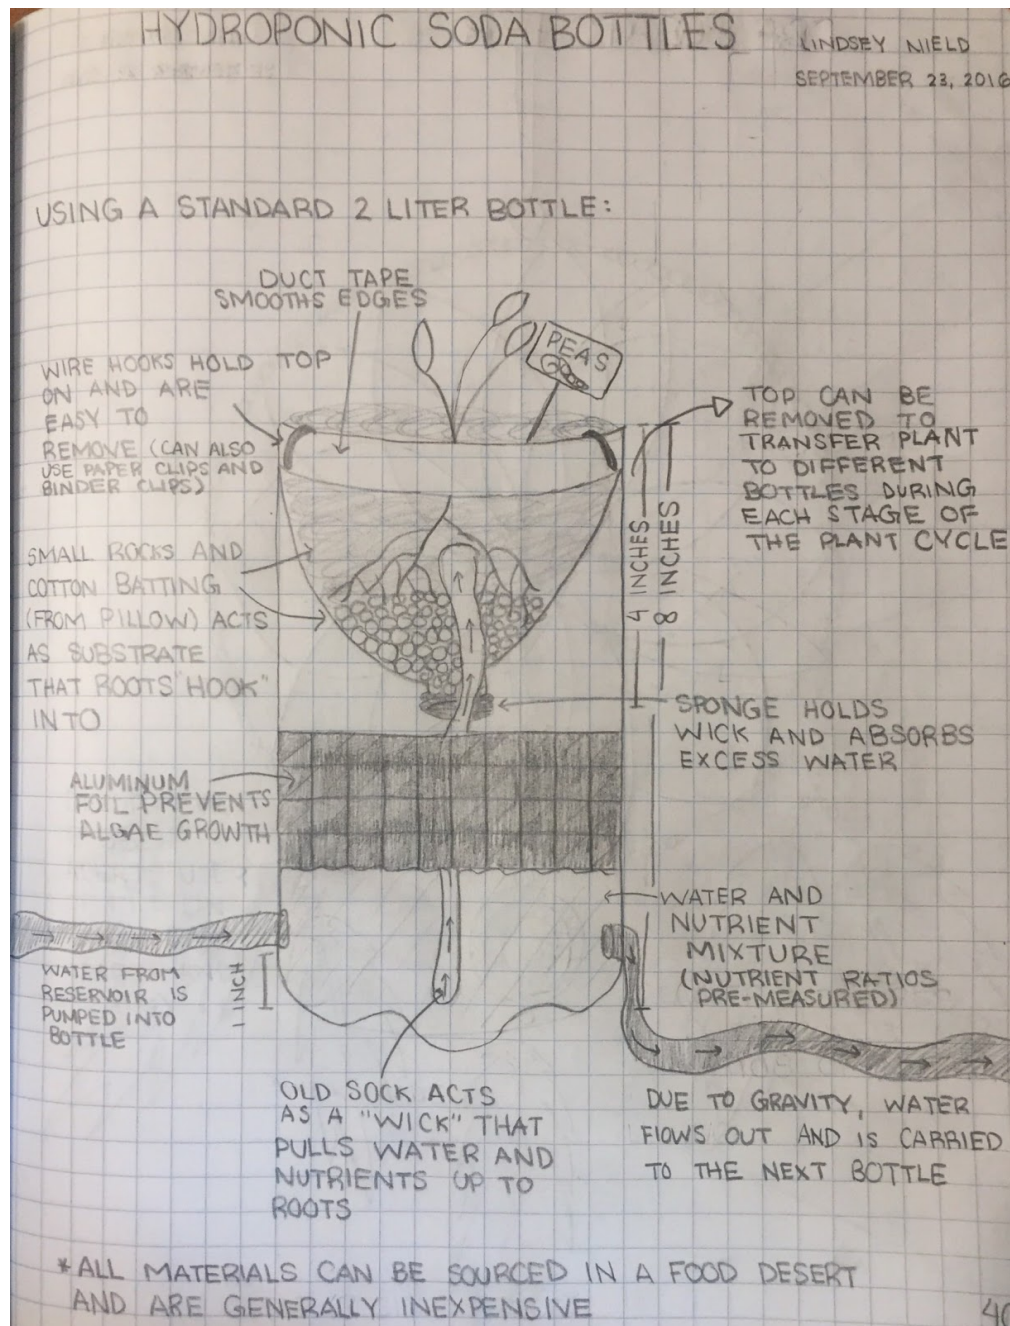 HYDROPONIC SODA BOTTLES
LINDSEY NIELD
SEPTEMBER 23, 2016
USING A STANDARD 2 LITER BOTTLE:
DUCT TAPE
SMOOTHS EDGES
PEAS
WIRE HOOKS HOLD TOP
ON AND ARE
EASY TO
REMOVE (CAN ALSO
USE PAPER CLIPS AND
BINDER CLIPS)
TOP CAN BE
REMOVED TO
TRANSFER PLANT
TO DIFFERENT
BOTTLES DURING
EACH STAGE OF
THE PLANT CYCLE
4 INCHES
8 INCHES
SMALL ROCKS AND
COTTON BATTING
(FROM PILLOW) ACTS
AS SUBSTRATE
THAT ROOTS "HOOK"
INTO
SPONGE HOLDS
WICK AND ABSORBS
EXCESS WATER
ALUMINUM
FOIL PREVENTS
ALGAE GROWTH
WATER AND
NUTRIENT
MIXTURE
(NUTRIENT RATIOS
PRE-MEASURED)
WATER FROM
RESERVOIR IS
PUMPED INTO
BOTTLE
1 INCH
OLD SOCK ACTS
AS A "WICK" THAT
PULLS WATER AND
NUTRIENTS UP TO
ROOTS
DUE TO GRAVITY, WATER
FLOWS OUT AND IS CARRIED
TO THE NEXT BOTTLE
*ALL MATERIALS CAN BE SOURCED IN A FOOD DESERT
AND ARE GENERALLY INEXPENSIVE